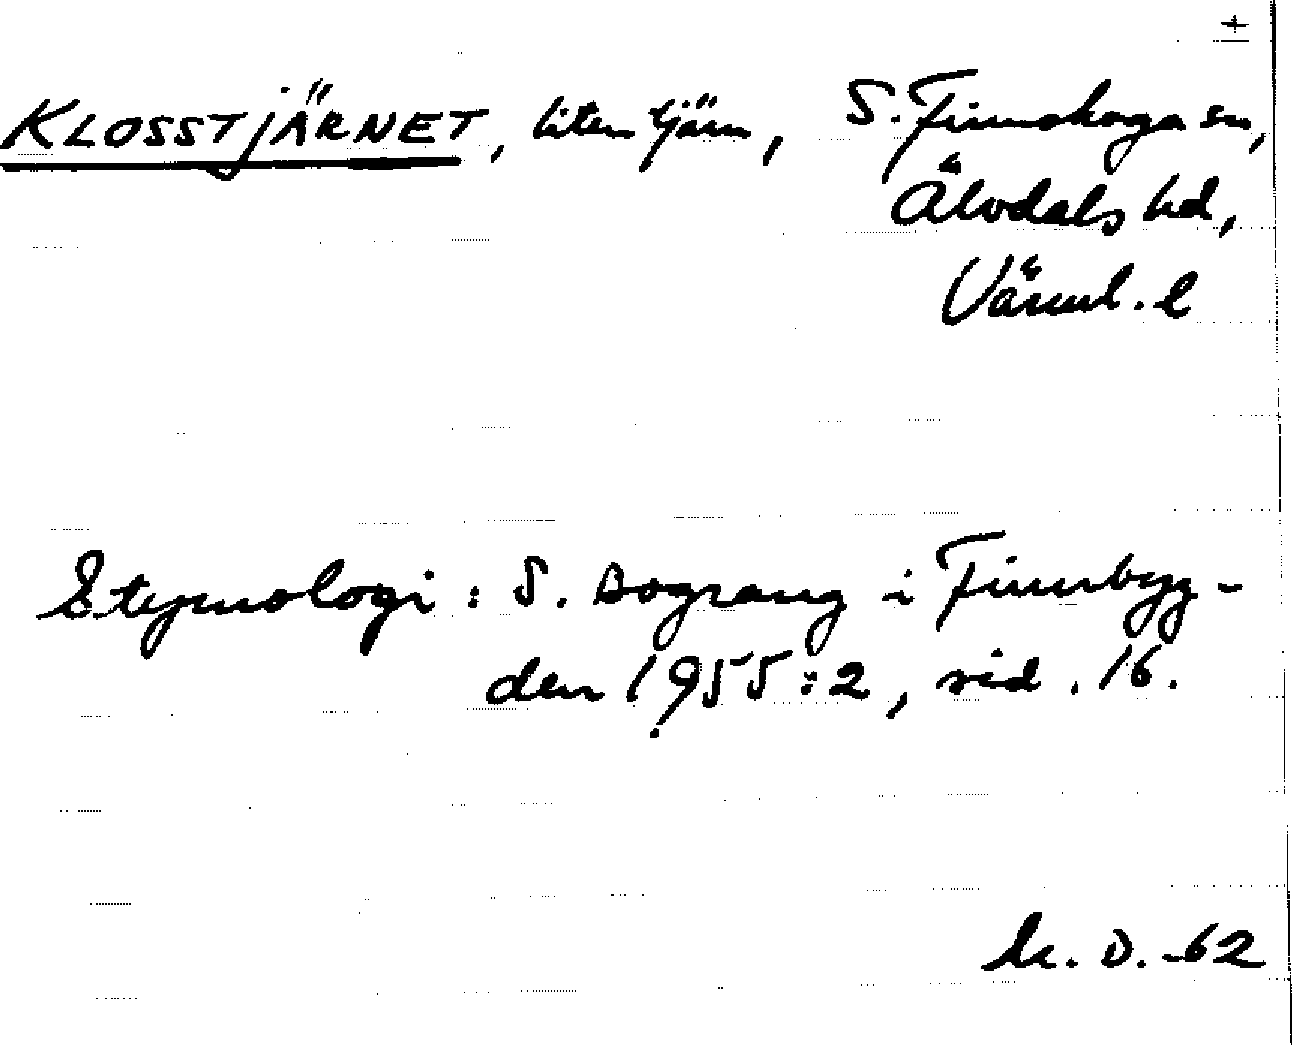 +
KLOSSTJÄRNET, liten tjärn, S. Finnskoga sn,
Älvdals hd,
Värml. l
Etymologi: S. Bograng i Finnbyg-
den 1955:2, sid. 16.
D. -62